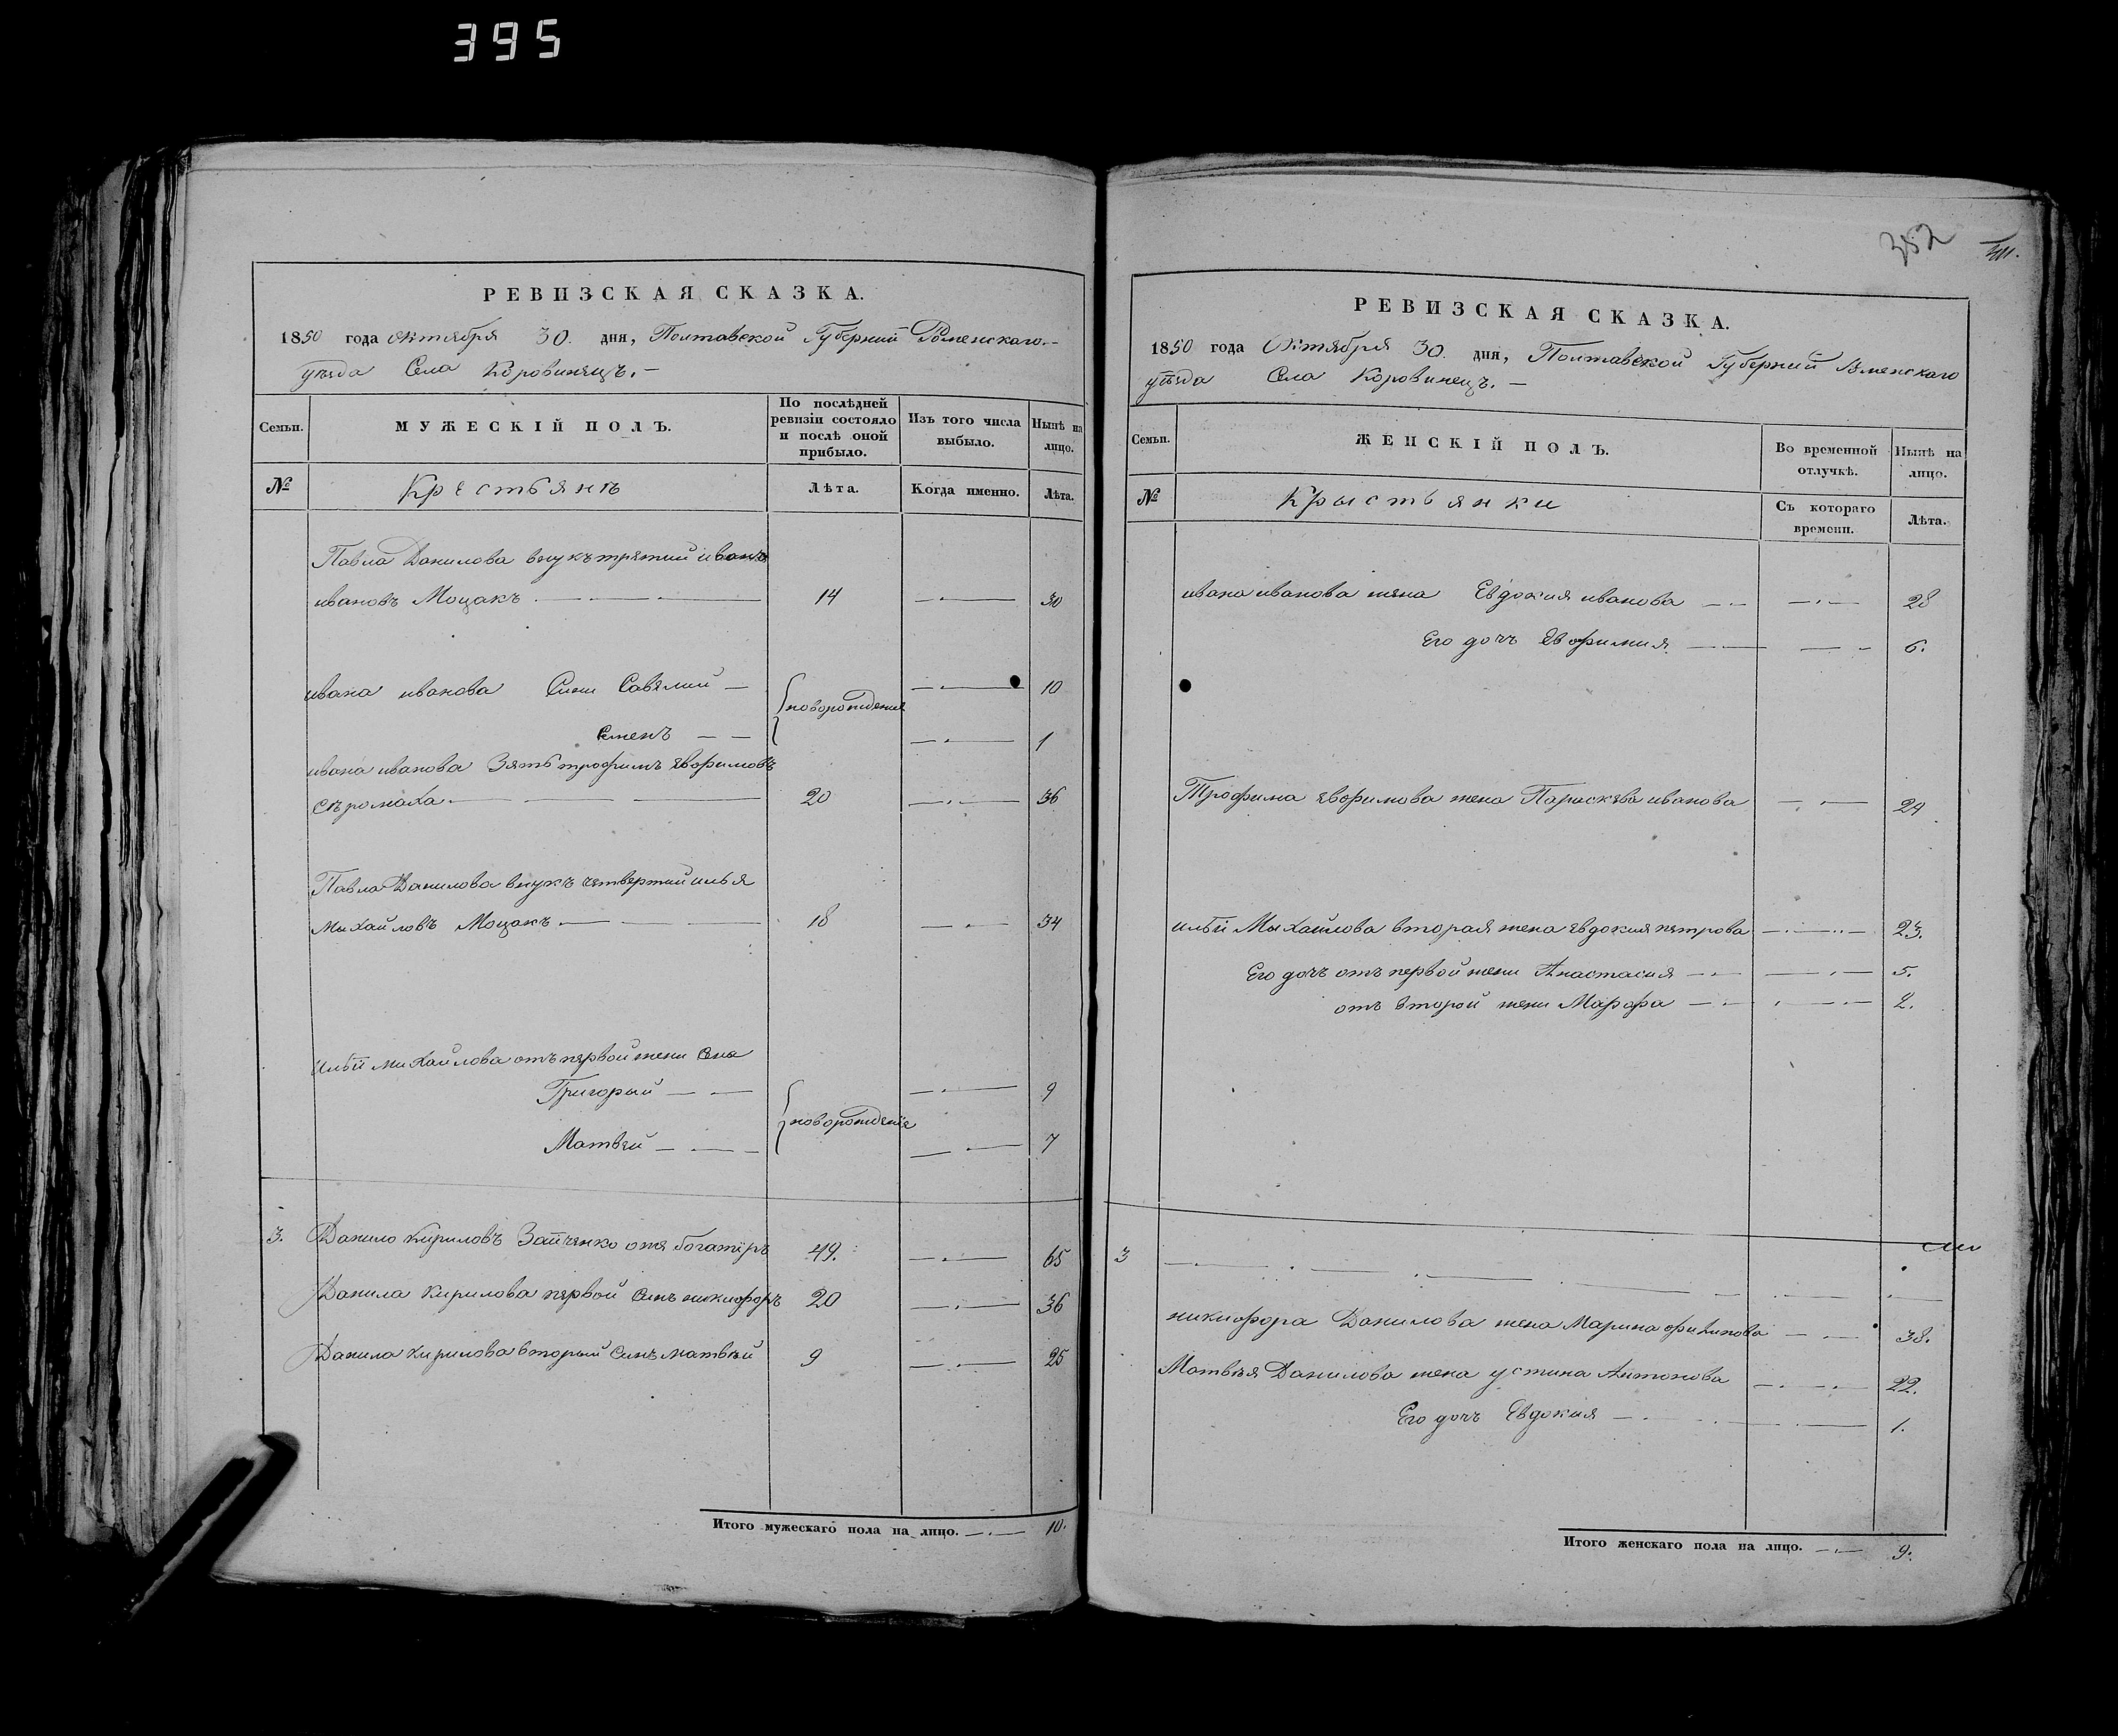 395
РЕВИЗСКАЯ СКАЗКА.
1850 года октября 30. дня, Полтавской Губерний Роменскаго
уѣзда Села Коровинецъ.
Семьи.
МУЖЕСКІЙ ПОЛЪ.
По послѣдней ревизіи состояло и послѣ оной прибыло.
Изъ того числа выбыло.
Нынѣ на лицо.
№
Крестьянъ
Лѣта.
Когда именно.
Лѣта.
Павла Данилова внукъ третий иванъ
ивановъ Моцакъ 14 30
ивана иванова Сини Савелий 10
новорождение
Семенъ 1
ивана иванова Зять трофимъ Евфимовъ
Сѣромаха 20 36
Павла Данилова внукъ четвертий илья
Михайловъ Моцакъ 18 34
ильи Михайлова отъ первой жени Сна
Григорый 9
новорождение
Матвей 7
3. Данило Кириловъ Зайченко онъ богатиръ 49. 65
Данила Кирилова первой Синъ никифоръ 20 36
Данила Кирилова вторый Синъ матвѣй 9 25
Итого мужескаго пола на лицо. 10.
352
РЕВИЗСКАЯ СКАЗКА.
1850 года Октября 30. дня, Полтавской Губерний Роменскаго
уѣзда Села Коровинецъ.
Семьи.
ЖЕНСКІЙ ПОЛЪ.
Во временной отлучкѣ.
Нынѣ на лицо.
№
Крыстьянки
Съ котораго времени.
Лѣта.
ивана иванова жена Евдокия иванова 28
Его дочъ Евфимия 6.
Трофима Евфимова жена Параскева иванова 29
ильй Мыхайлова вторая жена Евдокия петрова 23.
Его дочъ отъ первой жени Анастасия 5.
отъ второй жени Марфа 2.
3
никифора Данилова жена Марина филипова 38.
Матвѣя Данилова жена устина Антонова 22.
Его дочъ Евдокия 1.
Итого женскаго пола на лицо. 9.